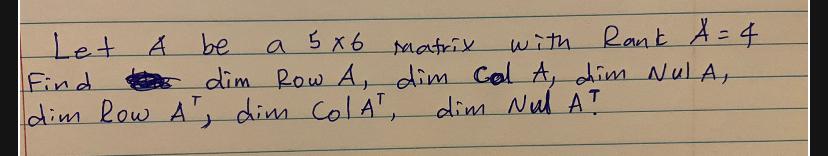 Let A be a 5 x 6 matrix with Rank A = 4
Find dim Row A, dim Col A, dim Nul A,
dim Row Aᵀ, dim Col Aᵀ, dim Nul Aᵀ.